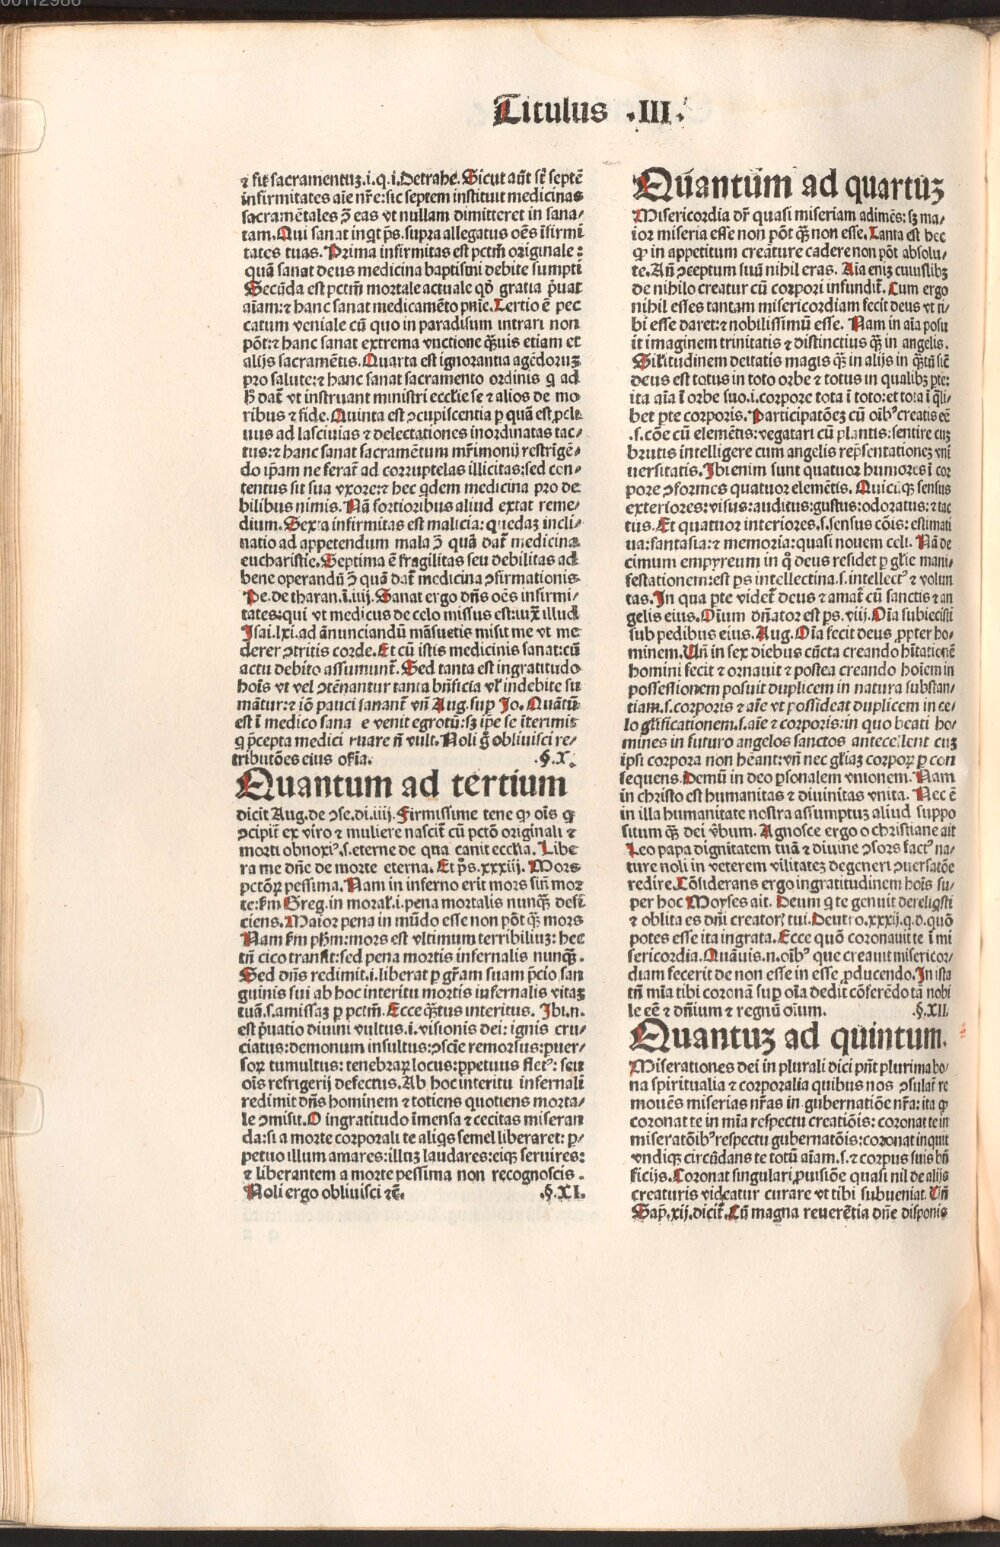 Titulus .III.
⁊ fit sacramentuꝫ.i.q.i.Detrahe. Sicut aūt sͭ septē
infirmitates aīe nr̄e: sic septem instituit medicinas
sacramētales ꝯ̄ eas vt nullam dimitteret in sana/
tam. Qui sanat inqt ps̄. supra allegatus oēs īfirmi
tates tuas. Prima infirmitas est pctm̄ originale:
quā sanat deus medicina baptismi debite sumpti
Secūda est pctm̄ mortale actuale qd̄ gratia p̄uat
aīam: ⁊ hanc sanat medicamēto pnīe. Tertio ē pec
catum veniale cū quo in paradisum intrari non
pōt: ⁊ hanc sanat extrema vnctione q̄uis etiam et
alijs sacramētis. Quarta est ignorantia agēdoruꝫ
pro salute: ⁊ hanc sanat sacramento ordinis q ad
ꝭ dat̄ vt instruant ministri ecclie se ⁊ alios de mo
ribus ⁊ fide. Quinta est ꝯcupiscentia ꝑ quā est ꝓcli
uus ad lasciuias ⁊ delectationes inordinatas tac/
tus: ⁊ hanc sanat sacramētum mr̄imonij restrigē/
do ip̄am ne ferat̄ ad corruptelas illicitas: sed con/
tentus sit sua vxore: ⁊ hec qdem medicina pro de
bilibus nimis. Nā fortioribus aliud extat reme/
dium. Sexta infirmitas est malicia: quedaꝫ incli/
natio ad appetendum mala ꝯ̄ quā dat̄ medicina
eucharistie. Septima ē fragilitas seu debilitas ad
bene operandū ꝯ̄ quā dat̄ medicina ꝯfirmationis
Pe. de tharan. ī.iiij. Sanat ergo dn̄s oēs infirmi/
tates: qui vt medicus de celo missus est: iux̄ illud
Isai.lxi. ad ānunciandū māsuetis misit me vt me
derer ꝯtritis corde. Et cū istis medicinis sanat: cū
actu debito assumunt̄. Sed tanta est ingratitudo
hoīs vt vel ꝯtēnantur tanta bn̄ficia vl̓ indebite su
māntur: ⁊ iō pauci sanant̄ vn̄ Aug. suꝑ Io. Quātū
est ī medico sana e venit egrotū: sꝫ ip̄e se īterimit
q p̄cepta medici ruare n̄ vult. Noli gͦ obliuisci re/
tributōes eius oēs. .§.X.
Quantum ad tertium
dicit Aug. de ꝯse. di.iiij. Firmissime tene ꝙ oīs q
ꝯcipit̄ ex viro ⁊ muliere nascit̄ cū pctō originali ⁊
morti obnoxiꝰ.s. eterne de qua canit ecclia. Libe
ra me dn̄e de morte eterna. Et ps̄.xxxiij. Mors
pctōꝝ pessima. Nam in inferno erit mors sin̄ mor
te: ẜm Greg. in moral̓. i. pena mortalis nunqͣꝫ defi
ciens. Maior pena in mūdo esse non pōt q̄ mors
Nam ẜm ph̄m: mors est vltimum terribiliuꝫ: hec
tn̄ cito transit: sed pena mortis infernalis nunqͣꝫ.
Sed dn̄s redimit.i. liberat ꝑ gr̄am suam p̄cio san
guinis sui ab hoc interitu mortis infernalis vitaꝫ
tuā.s. amissaꝫ ꝑ pctm̄. Ecce q̄tus interitus. Ibi.n.
est p̄uatio diuini vultus.i. visionis dei: ignis cru/
ciatus: demonum insultus: ꝯscīe remorsus: ꝑuer/
soꝝ tumultus: tenebraꝝ locus: ꝑpetuus fletꝰ: seu
oīs refrigerij defectus. Ab hoc interitu infernali
redimit dn̄s hominem ⁊ totiens quotiens morta/
le ꝯmisit. O ingratitudo īmensa ⁊ cecitas miseran
da: si a morte corporali te aliqs semel liberaret: ꝑ/
petuo illum amares: illuꝫ laudares: eiqꝫ seruires:
⁊ liberantem a morte pessima non recognoscis.
Noli ergo obliuisci ⁊c̄. .§.XI.
Quantum ad quartuꝫ
Misericordia dr̄ quasi miseriam adimēs: sꝫ ma/
ior miseria esse non pōt q̄ non esse. Tanta est hec
ꝙ in appetitum creature cadere non pōt absolu/
te. An̄ ꝯceptum suū nihil eras. Aīa eniꝫ cuiuslibꝫ
de nihilo creatur cū corpori infundit̄. Cum ergo
nihil esses tantam misericordiam fecit deus vt ti/
bi esse daret: ⁊ nobilissimū esse. Nam in aīa posu
it imaginem trinitatis ⁊ distinctius q̄ in angelis.
Sil̓itudinem deitatis magis q̄ in alijs in q̄tū sic̄
deus est totus in toto orbe ⁊ totus in qualibꝫ pte:
ita aīa ī orbe suo.i. corpore tota ī toto: et tota ī qli/
bet pte corporis. Participatōeꝫ cū oībꝰ creatis eē
.s. cōe cū elemētis: vegetari cū plantis: sentire cuꝫ
brutis intelligere cum angelis rep̄sentationeꝫ vni
uersitatis. Ibi enim sunt quatuor humores ī cor
pore ꝯformes quatuor elemētis. Quinqꝫ sensus
exteriores: visus: auditus: gustus: odoratus: ⁊ tac
tus. Et quatuor interiores.s. sensus cōis: estimati
ua: fantasia: ⁊ memoria: quasi nouem celi. Nā de
cimum empyreum in q̄ deus residet ꝑ gl̓ie mani/
festationem: est ps intellectiua.s. intellectꝰ ⁊ volun
tas. In qua pte videt̄ deus ⁊ amat̄ cū sanctis ⁊ an
gelis eius. Oīum dn̄ator est ps̄.viij. Oīa subiecisti
sub pedibus eius. Aug. Oīa fecit deus ꝓpter ho/
minem. Vn̄ in sex diebus cūcta creando hītationē
homini fecit ⁊ ornauit ⁊ postea creando hoīem in
possessionem posuit duplicem in natura substan/
tiam.s. corporis ⁊ aīe vt possideat duplicem in ce/
lo gl̓ificationem.s. aīe ⁊ corporis: in quo beati ho/
mines in futuro angelos sanctos antecellent cuꝫ
ipsi corpora non hēant: vn̄ nec gl̓iaꝫ corpoꝝ ꝑ con
sequens. Demū in deo ꝑsonalem vnionem. Nam
in christo est humanitas ⁊ diuinitas vnita. Nec ē
in illa humanitate nostra assumptuꝫ aliud suppo
situm q̄ dei v̓bum. Agnosce ergo o christiane ait
Leo papa dignitatem tuā ⁊ diuine ꝯsors factꝰ na/
ture noli in veterem vilitateꝫ degeneri ꝯuersatōe
redire. Cōsiderans ergo ingratitudinem hoīs su/
per hoc Moyses ait. Deum q te genuit dereliqsti
⁊ oblita es dn̄i creatoris tui. Deutro.xxxij. q.d. quō
potes esse ita ingrata. Ecce quō coronauit te ī mi
sericordia. Quāuis.n. oībꝰ que creauit misericor/
diam fecerit de non esse in esse ꝓducendo. In ista
tn̄ mīa tibi coronā suꝑ oīa dedit cōferēdo tā nobi
le eē ⁊ dn̄ium ⁊ regnū oīum. .§.XII.
Quantuꝫ ad quintum.
Miserationes dei in plurali dici pn̄t plurima bo/
na spiritualia ⁊ corporalia quibus nos ꝯsulat̄ re
mouēs miserias nr̄as in gubernatiōe nr̄a: ita ꝙ
coronat te in mīa respectu creatiōis: coronat te in
miseratōibꝰ respectu gubernatōis: coronat inquit
vndiqꝫ circūdans te totū aīam.s. ⁊ corpus suis bn̄
ficijs. Coronat singulari ꝓuisiōe quasi nil de alijs
creaturis videatur curare vt tibi subueniat. Vn̄
Sap̄.xij. dicit̄. Cū magna reuerētia dn̄e disponis